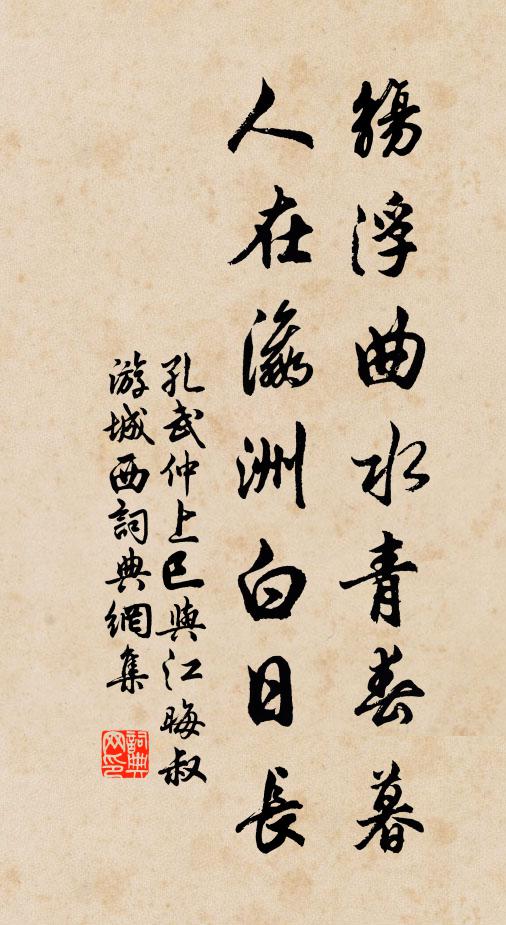 觴浮曲水青春暮
人在瀛洲白日長
孔武仲上巳與江晦叔
游城西詞典網集
詞典網印